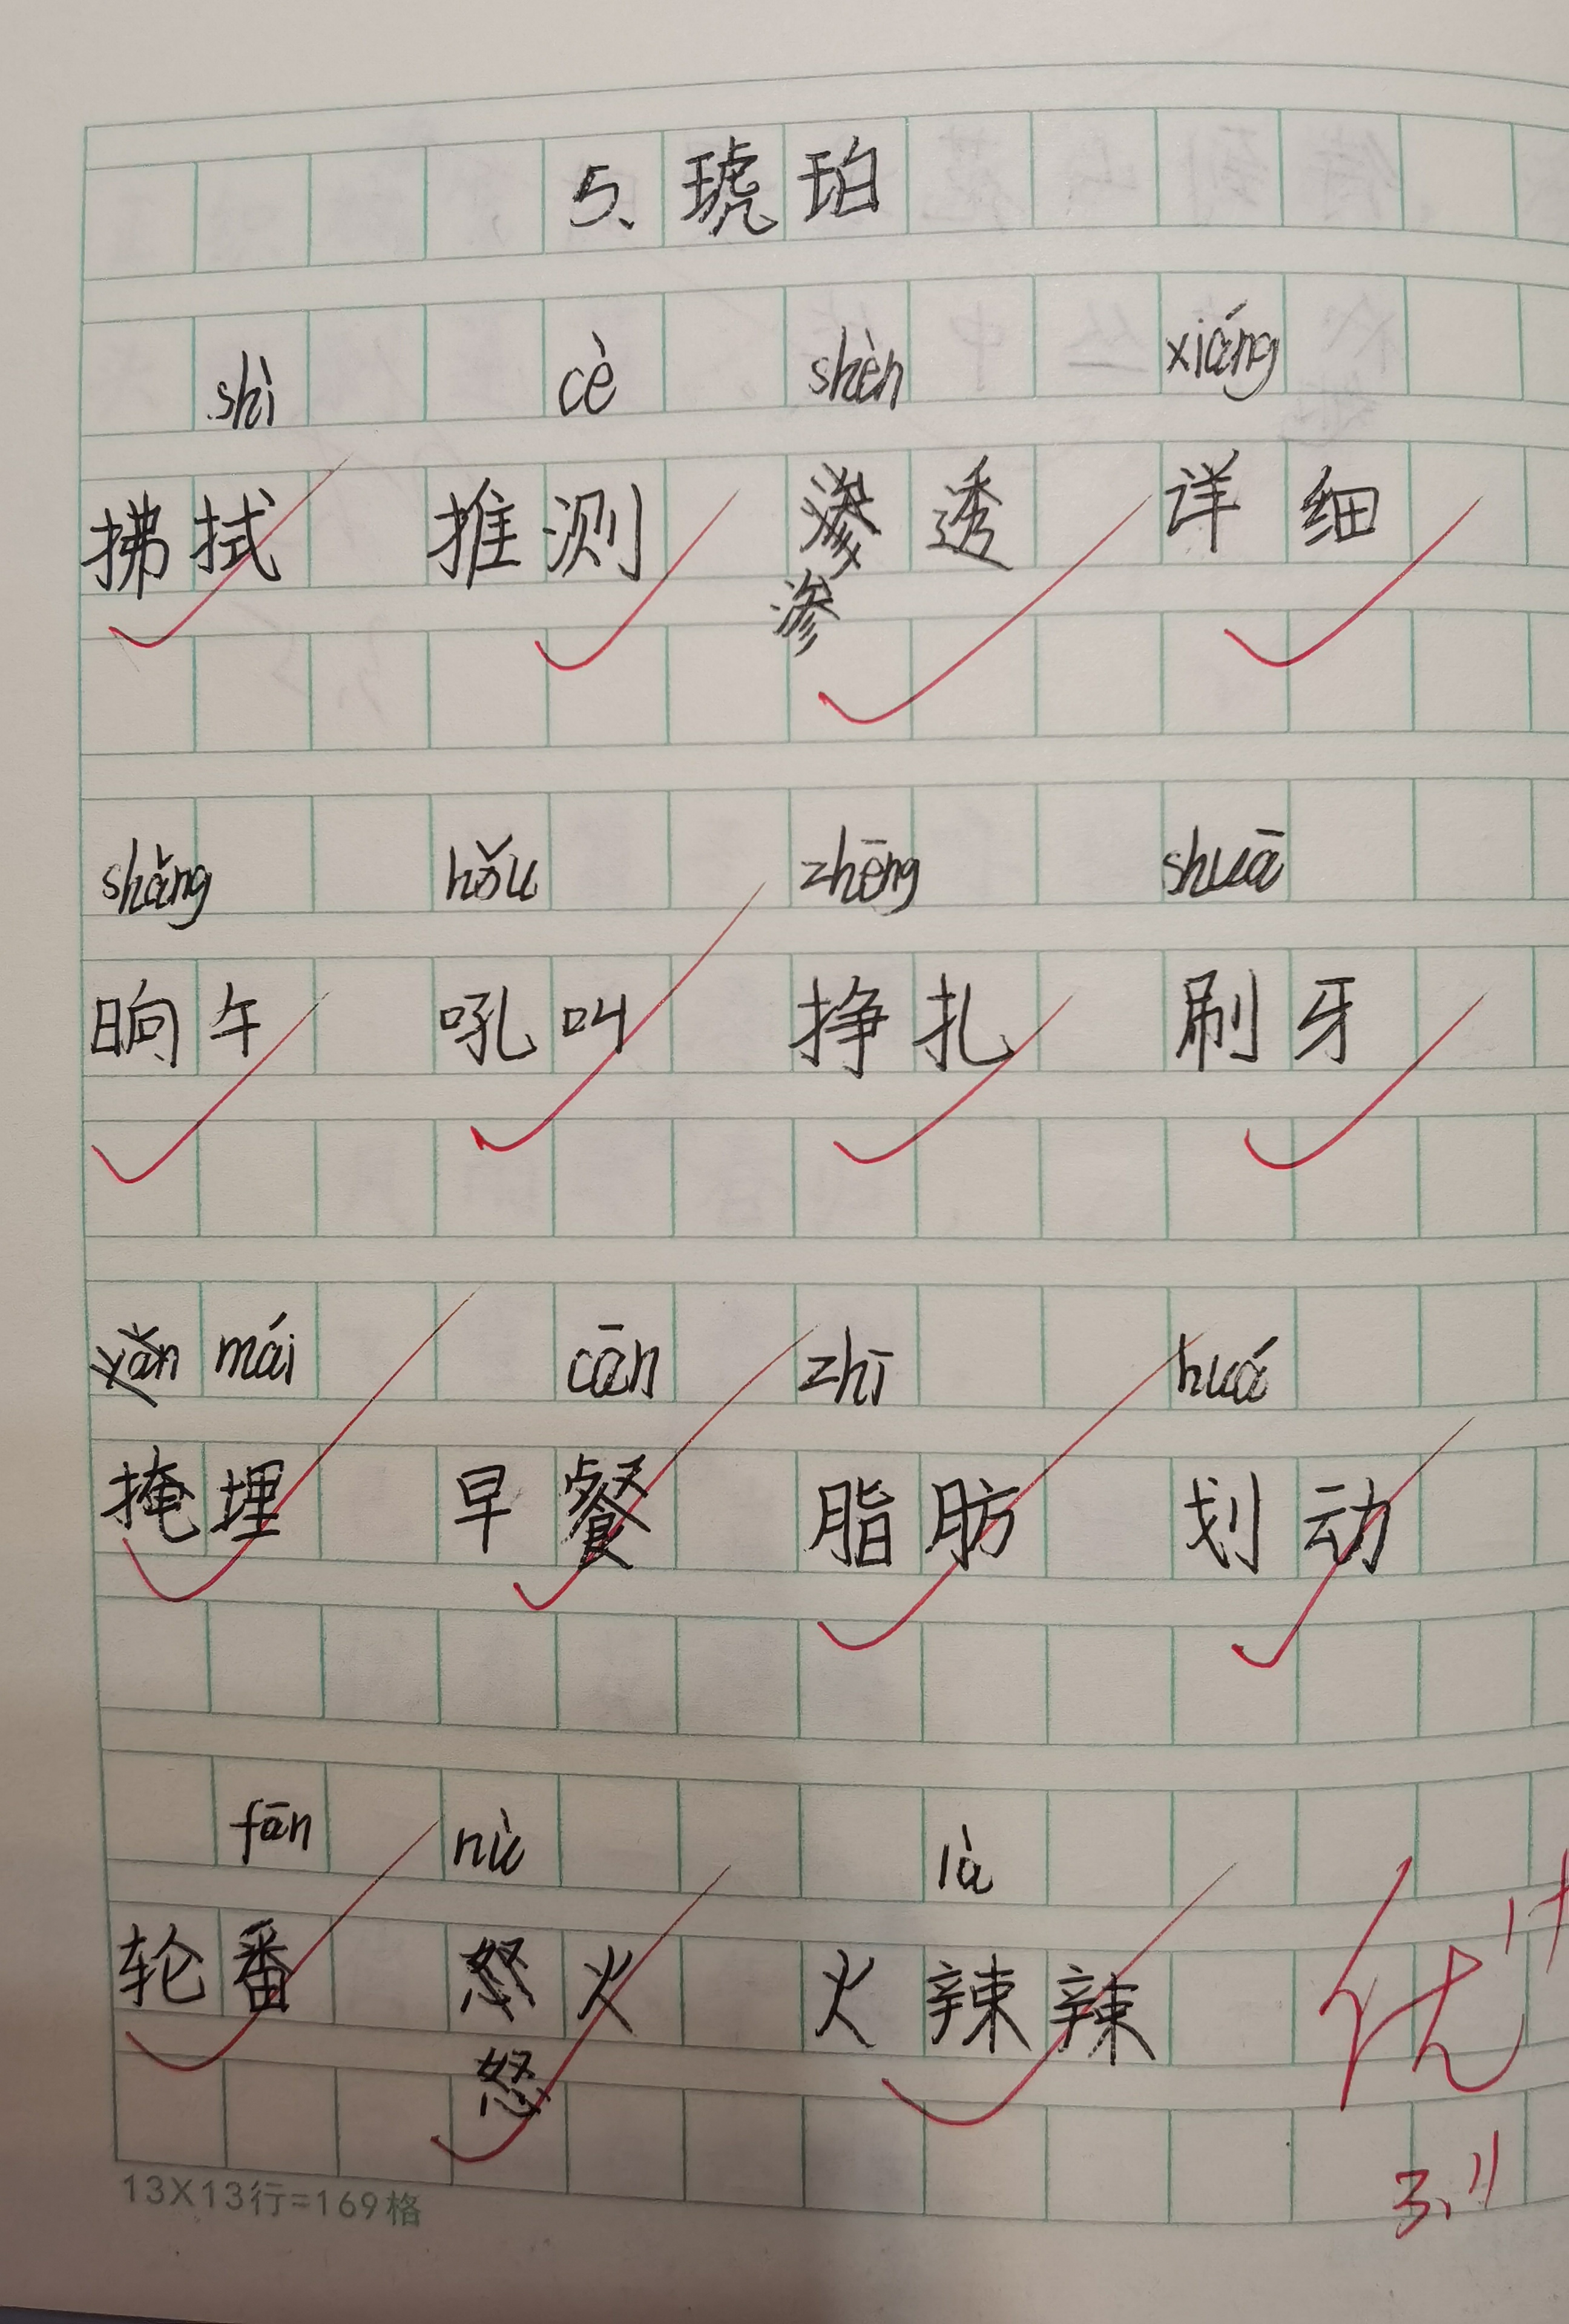 5、琥珀
shì cè shèn xiáng
拂拭 推测 渗透 详细
渗
shǎng hǒu zhēng shuā
晌午 吼叫 挣扎 刷牙
yǎn mái cān zhī huá
掩埋 早餐 脂肪 划动
fān nù là
轮番 怒火 火辣辣
怒
优++
3、11
13X13行=169格